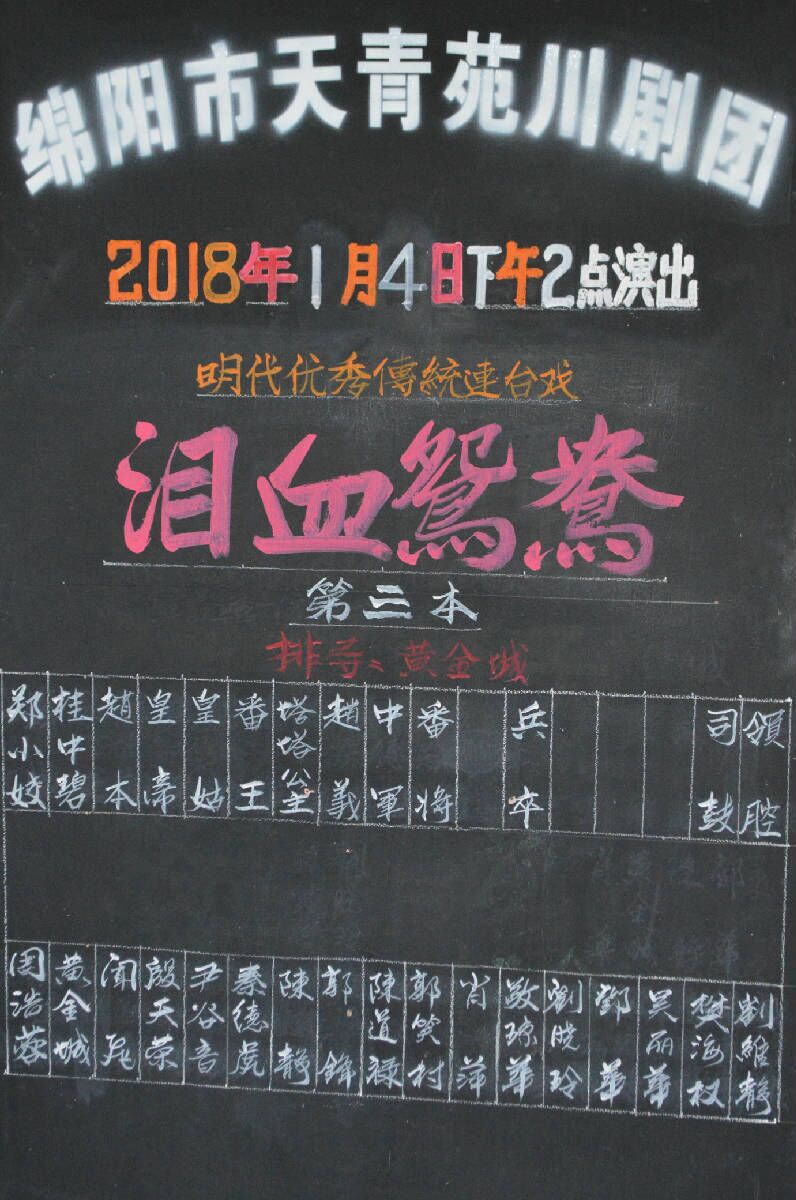 绵阳市天青苑川剧团
2018年1月4日下午2点演出
明代优秀傳統連台戏
泪血鴛鴦
第二本
排导：黄金城
郑小姣 桂中碧 趙本 皇帝 皇姑 番王 塔塔公主 趙義 中軍 番将 兵卒 司鼓 領腔
周浩蓉 黄金城 闻彪 殷天荣 尹谷音 秦德虎 陳静 郭鋒 陳道禄 郭笑村 肖萍 敬琼華 劉晓玲 鄧華 吴丽華 樊海权 劉維静